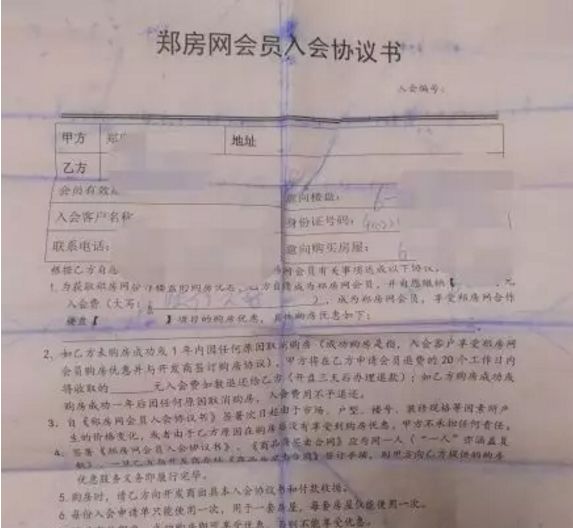 郑房网会员入会协议书
入会编号：
甲方 郑 地址
乙方
会员有效 意向楼盘：6
入会客户名称 身份证号码：
联系电话： 意向购买房屋：6
根据乙方自愿 房网会员有关事项达成以下协议。
1. 为获取郑房网合作楼盘的购房优惠，乙方自愿成为郑房网会员，并自愿缴纳【 元
入会费（大写： ），成为郑房网会员，享受郑房网合作
楼盘【 】项目的购房优惠，具体购房优惠如下：
2、如乙方未购房成功或1年内因任何原因取消购房（成功购房是指，入会客户享受郑房网
会员购房优惠并与开发商签订购房协议），甲方将在乙方申请会员退费的20个工作日内
将收取的 元入会费如数退还给乙方（开盘三天后办理退款）；如乙方购房成功或
购房成功一年后因任何原因取消购房，入会费用不予退还。
3、自《郑房网会员入会协议书》签署次日起由于市场、户型、楼号、装修规格等因素所产
生的价格变化，或者由于乙方原因在购房后没有享受到购房优惠，甲方不承担任何责任。
4、签署《郑房网会员入会协议书》、《商品房买卖合同》应为同一人（“一人”亦涵盖复
数），一旦乙方与开发商签订《商品房买卖合同》签订手续，则甲方向乙方提供的购房
优惠服务义务即履行完毕。
5、购房时，请乙方向开发商出具本入会协议书和付款收据。
6、每份入会申请单只能使用一次，用于一套房屋，每套房屋仅能使用一次。
则不能享受优惠。